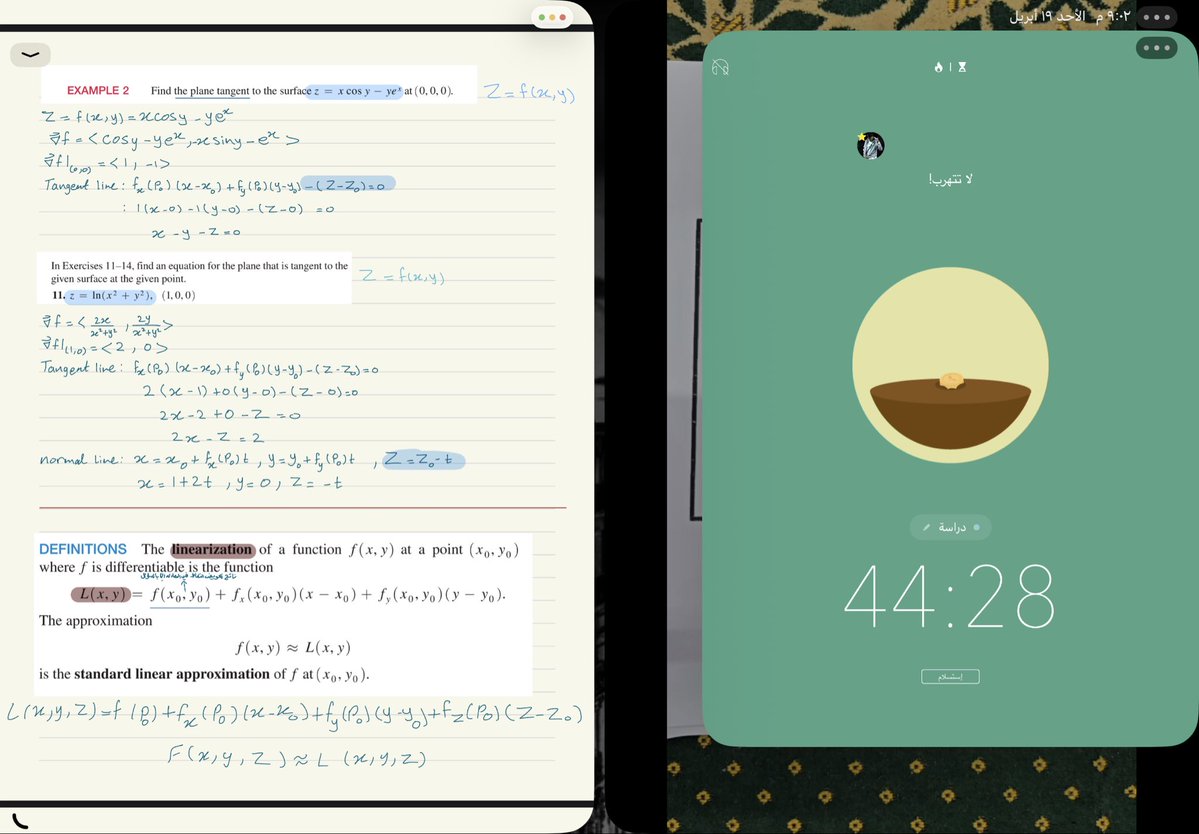 EXAMPLE 2 Find the plane tangent to the surface z = x cos y − yeˣ at (0, 0, 0).
Z = f(x,y)
Z = f(x,y) = x cosy - yeˣ
∇f = < cosy - yeˣ, -x siny - eˣ >
∇f|(0,0) = < 1, -1 >
Tangent line: fx(P₀)(x-x₀) + fy(P₀)(y-y₀) - (Z-Z₀) = 0
: 1(x-0) - 1(y-0) - (Z-0) = 0
x - y - Z = 0
In Exercises 11–14, find an equation for the plane that is tangent to the
given surface at the given point.
Z = f(x,y)
11. z = ln(x² + y²), (1, 0, 0)
∇f = < 2x/(x²+y²), 2y/(x²+y²) >
∇f|(1,0) = < 2, 0 >
Tangent line: fx(P₀)(x-x₀) + fy(P₀)(y-y₀) - (Z-Z₀) = 0
2(x-1) + 0(y-0) - (Z-0) = 0
2x - 2 + 0 - Z = 0
2x - Z = 2
normal line: x = x₀ + fx(P₀)t, y = y₀ + fy(P₀)t, Z = Z₀ - t
x = 1 + 2t, y = 0, Z = -t
DEFINITIONS The linearization of a function f(x, y) at a point (x₀, y₀)
where f is differentiable is the function
L(x, y) = f(x₀, y₀) + fx(x₀, y₀)(x − x₀) + fy(x₀, y₀)(y − y₀).
The approximation
f(x, y) ≈ L(x, y)
is the standard linear approximation of f at (x₀, y₀).
L(x,y,Z) = f(P₀) + fx(P₀)(x-x₀) + fy(P₀)(y-y₀) + fz(P₀)(Z-Z₀)
F(x,y,Z) ≈ L(x,y,Z)
٩:٠٢ م الأحد ١٩ أبريل
لا تتهرب!
دراسة
44:28
إستسلام